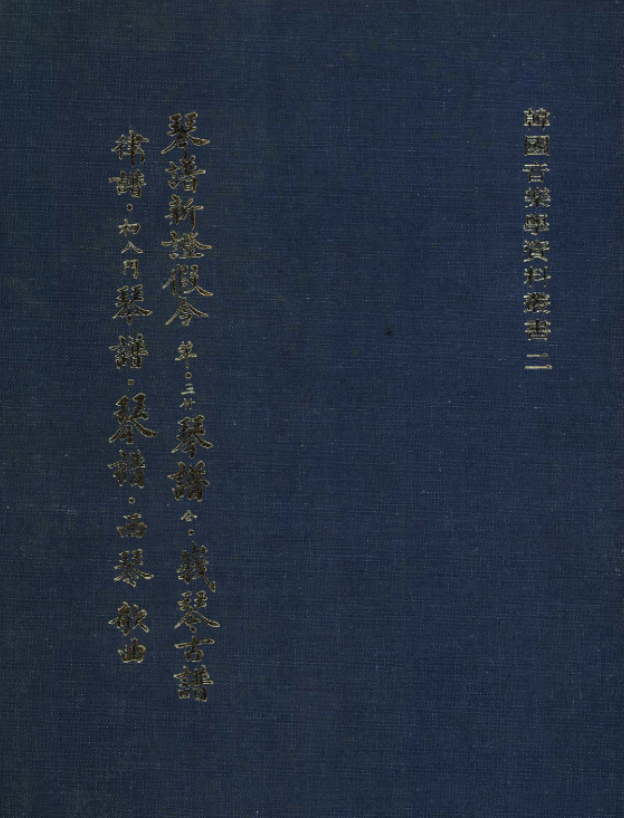 韓國音樂學資料叢書 二
琴譜新證假令·三竹琴譜全·峩琴古譜
律譜·初入門琴譜·琴譜·西琴歌曲